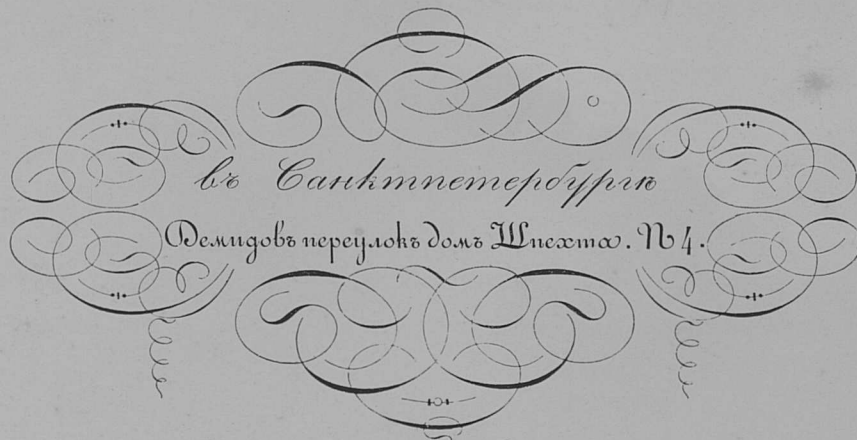 въ Санктпетербургѣ
Демидовъ переулокъ домъ Шпехта. N 4.